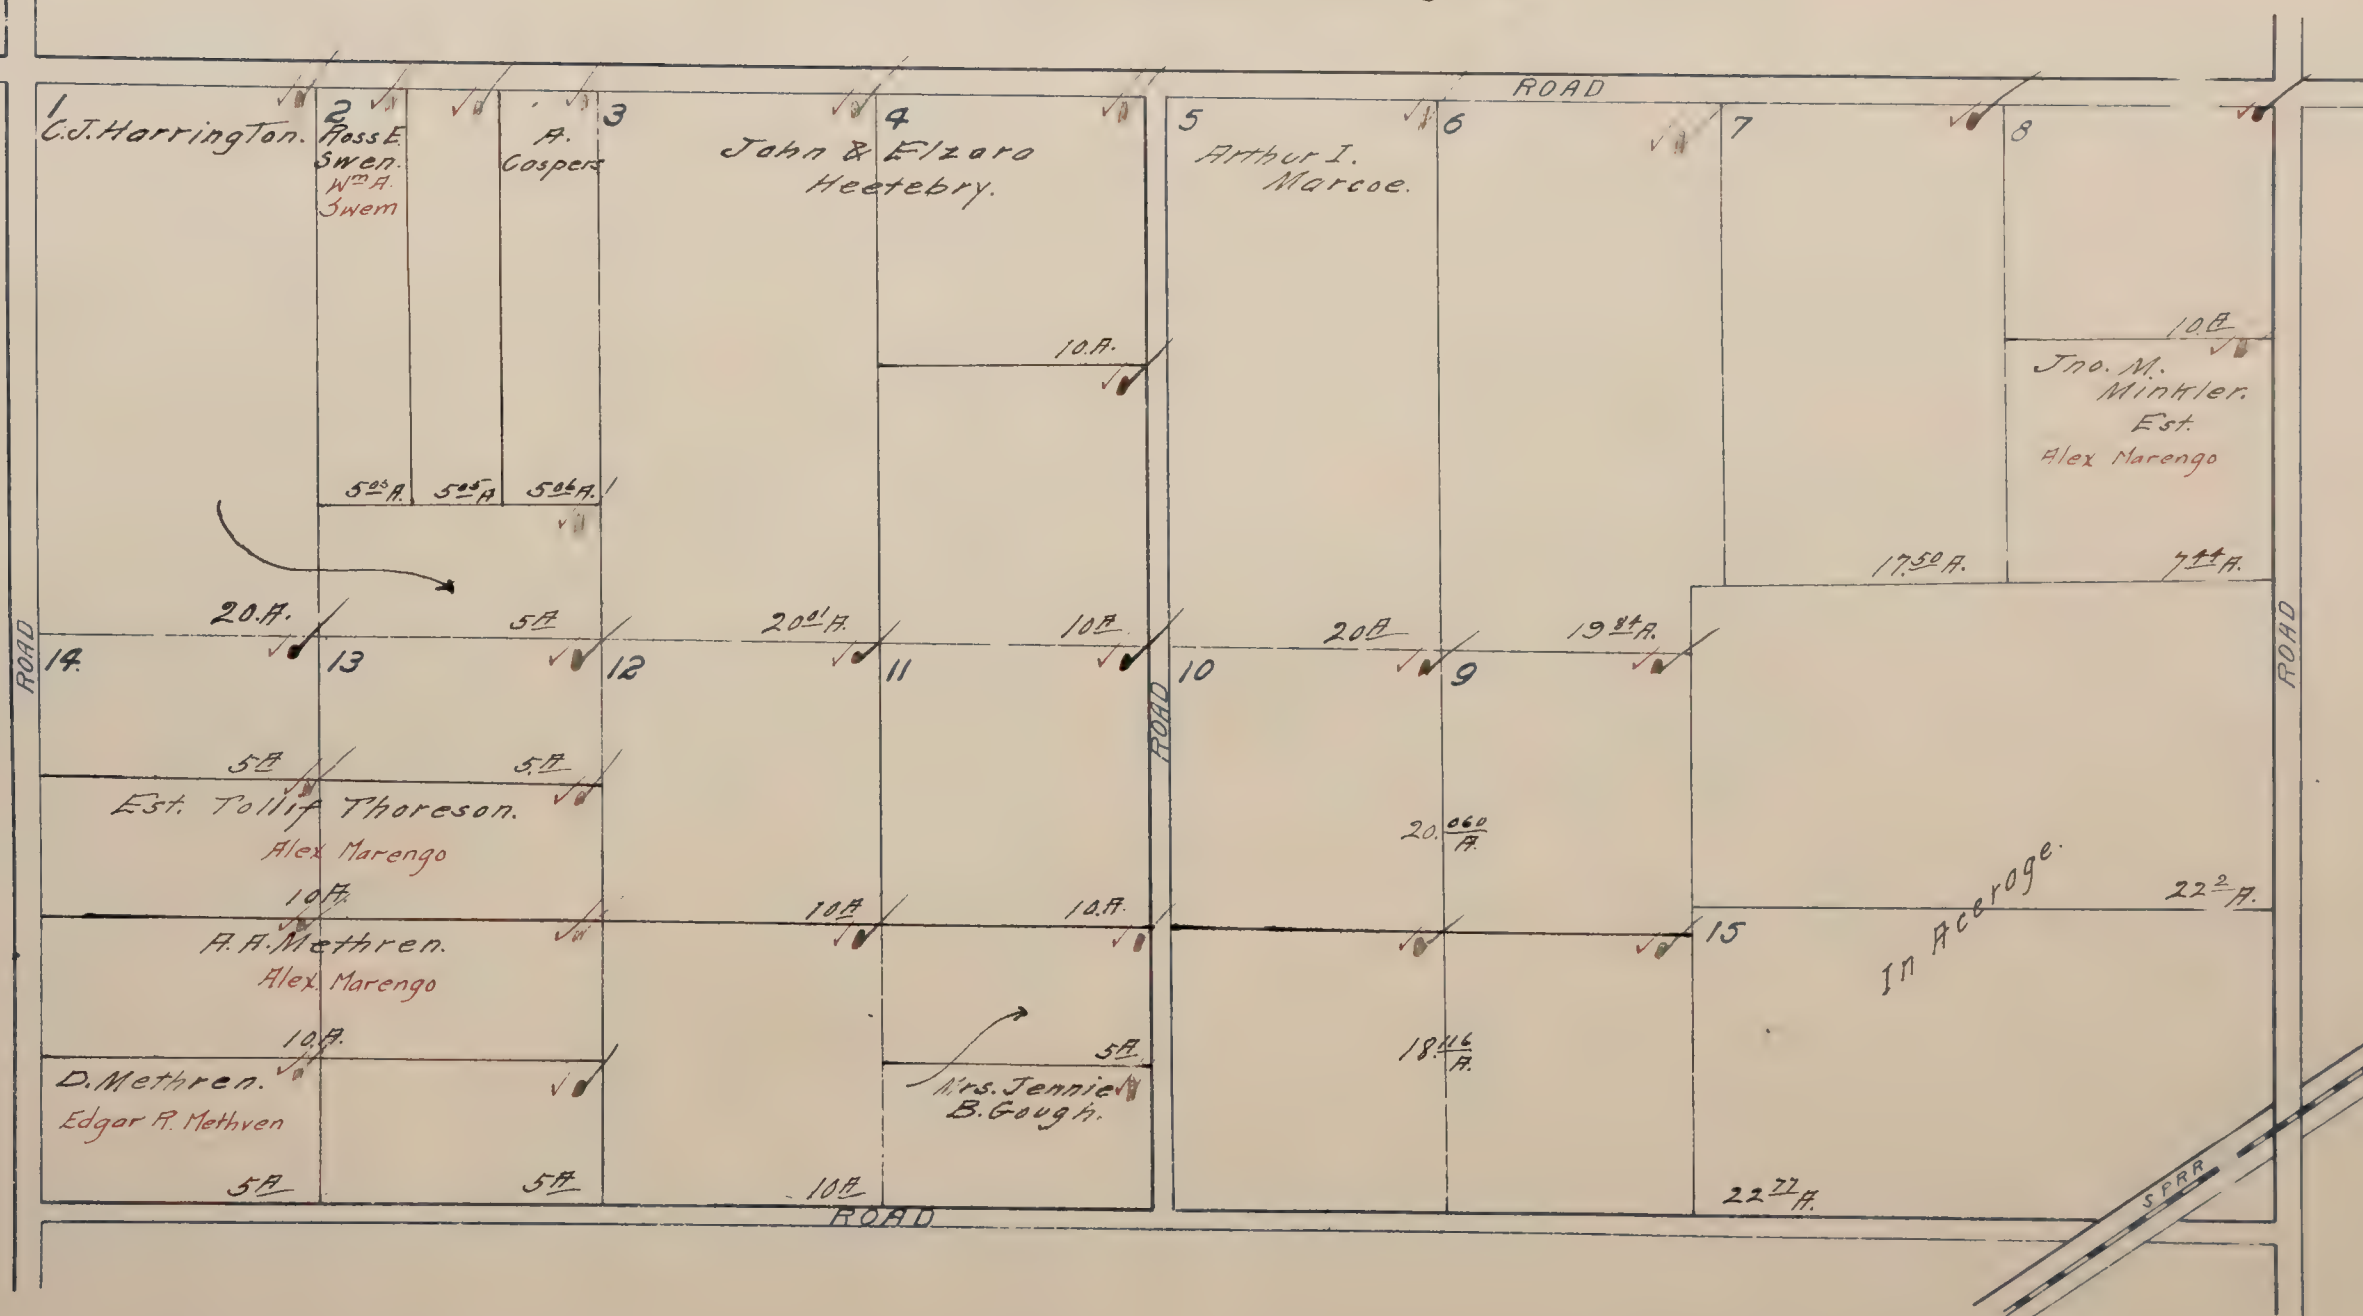 ROAD
1
C.J. Harrington.
2
Ross E.
Swen.
Wm A.
Swem
A.
Caspers
3
John & Elzara
Heetebry.
4
5
Arthur I.
Marcoe.
6
7
8
10.A.
10.A
Jno. M.
Minkler.
Est.
Alex Marengo
5.03 A.
5.05 A
5.06 A.
17.50 A.
7.44 A.
20.A.
5 A
20.01 A.
10 A
20 A
19.84 A.
ROAD
14.
13
12
11
ROAD
10
9
ROAD
5 A
5.A
Est. Tollif Thoreson.
Alex Marengo
20.060 A.
10 A.
10 A
10.A.
22.2 A.
A.A. Methren.
Alex. Marengo
15
In Acerage.
10.A.
5 A
18.116 A.
D. Methren.
Edgar R. Methven
Mrs. Jennie
B. Gough.
5 A
5 A
10 A
22.77 A.
SPRR
ROAD